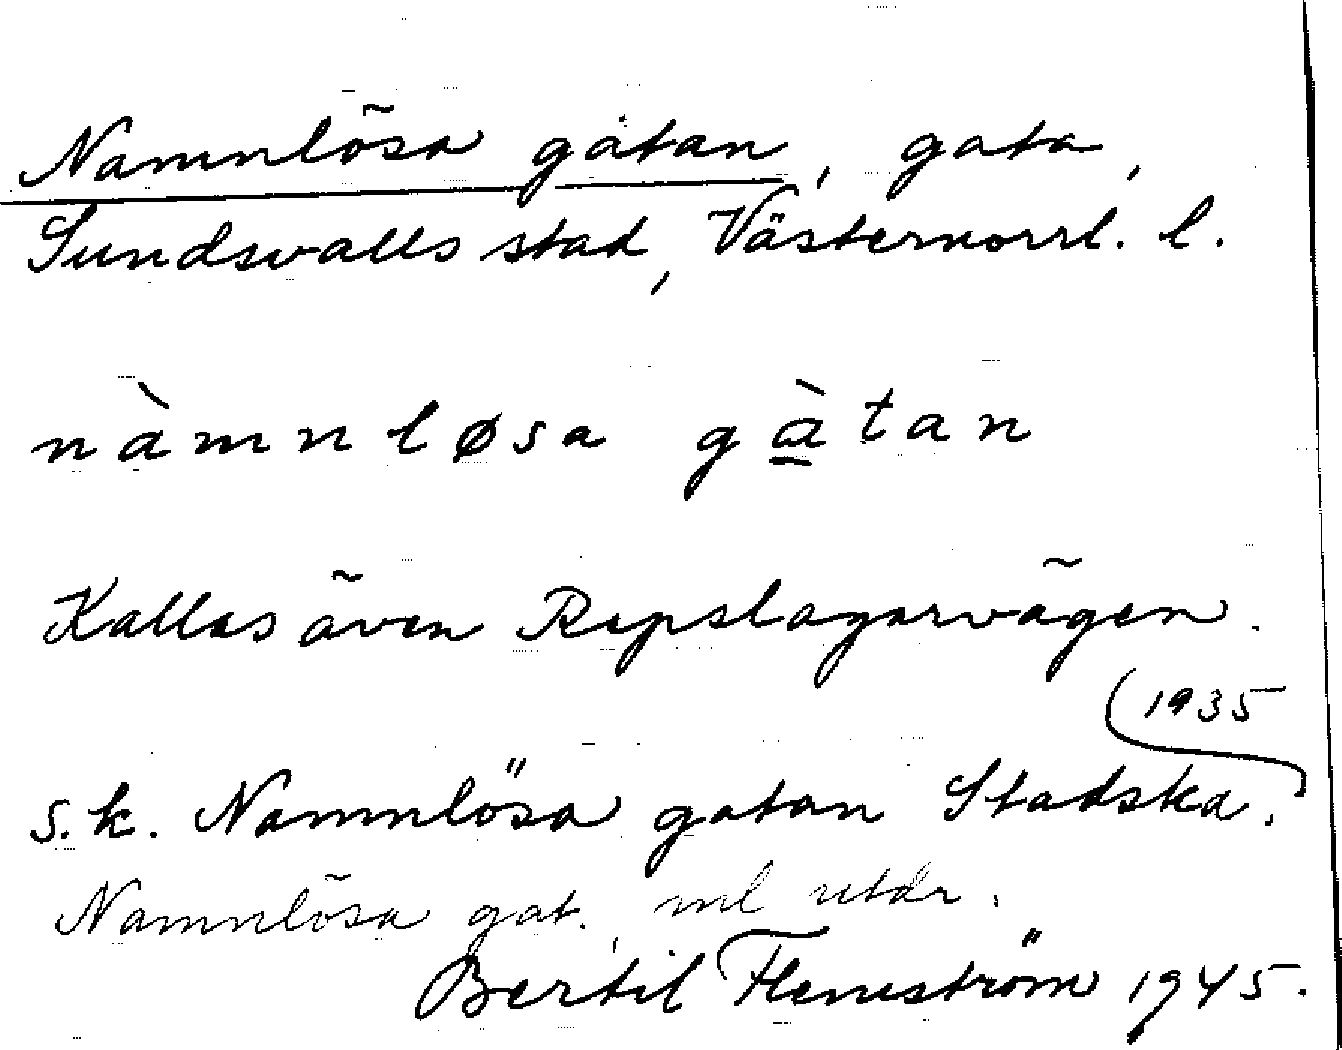 Namnlösa gatan, gata,
Sundsvalls stad, Västernorrl. l.
nàmnløsa gà̲tan
Kallas även Repslagarvägen.
1935
s.k. Namnlösa gatan Stadska.
Namnlösa gat., ml utdr.
Bertil Flemström 1945.